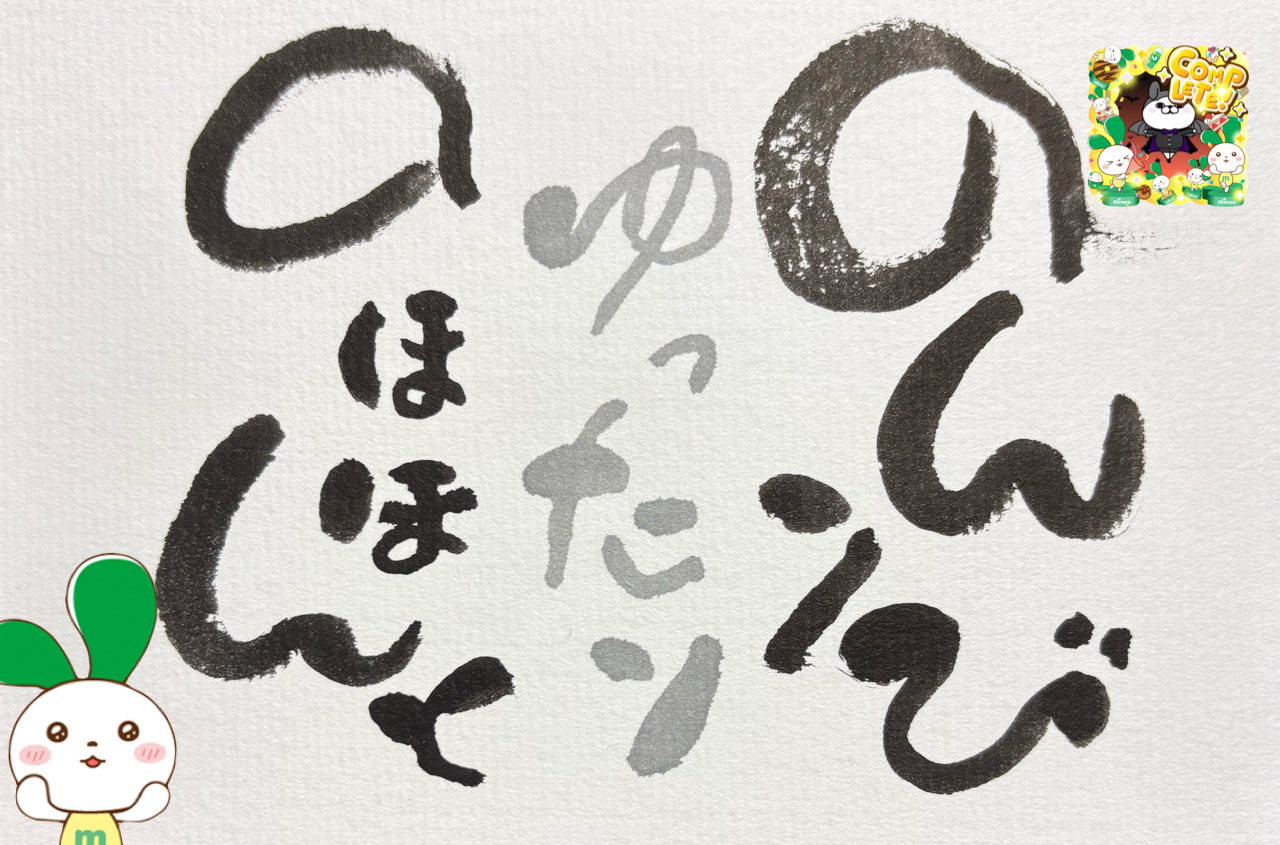 のんびり
ゆったり
のほほんと
COMP
LETE!
m
m